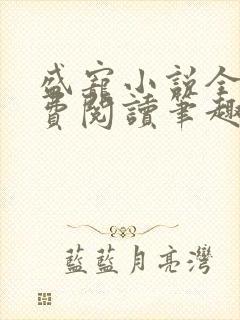 盛寵小説全
費閱讀筆趣
藍藍月亮灣